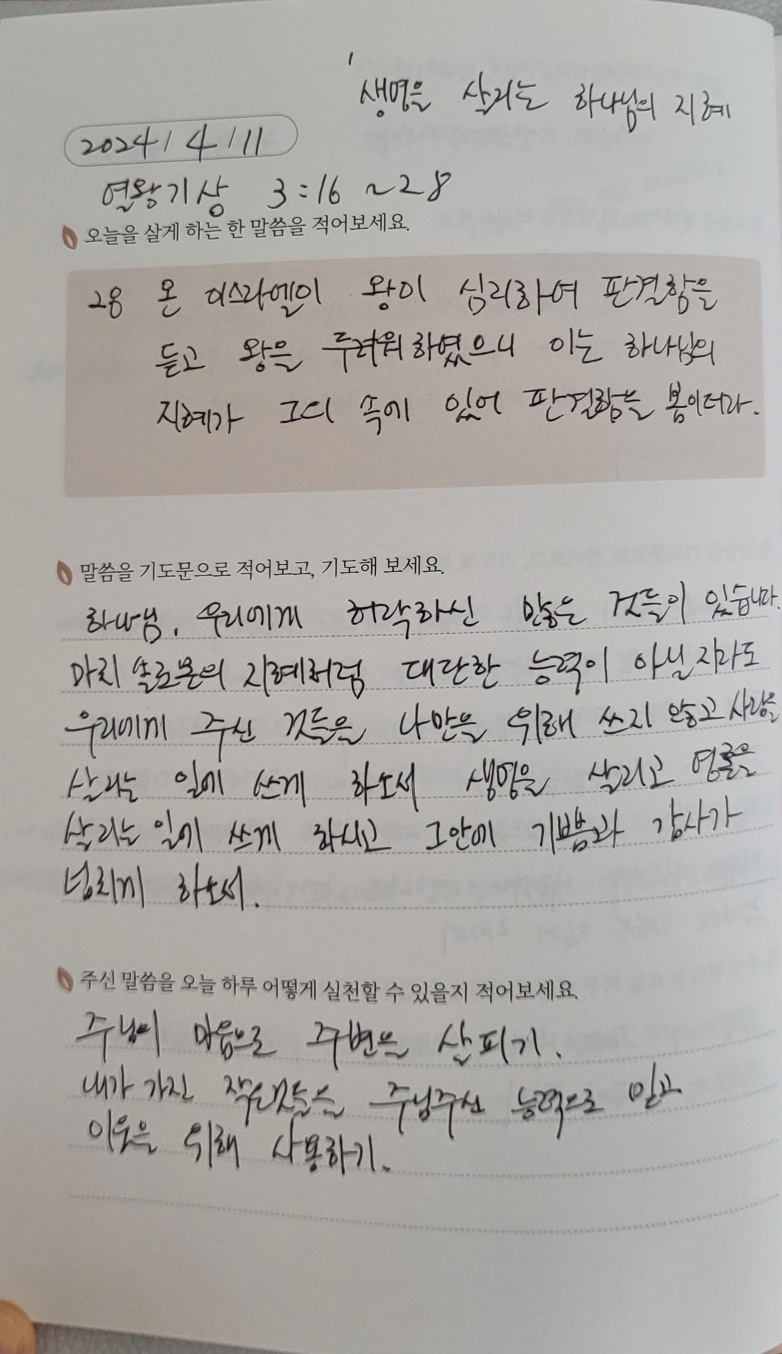 '생명을 살리는 하나님의 지혜
2024/4/11
열왕기상 3:16~28
오늘을 살게 하는 한 말씀을 적어보세요.
28 온 이스라엘이 왕이 심리하여 판결함을
듣고 왕을 두려워하였으니 이는 하나님의
지혜가 그의 속에 있어 판결함을 봄이더라.
말씀을 기도문으로 적어보고, 기도해 보세요.
하나님, 우리에게 허락하신 많은 것들이 있습니다.
마치 솔로몬의 지혜처럼 대단한 능력이 아닐지라도
우리에게 주신 것들을 나만을 위해 쓰지 않고 사람을
살리는 일에 쓰게 하소서 생명을 살리고 영혼을
살리는 일에 쓰게 하시고 그안에 기쁨과 감사가
넘치게 하소서.
주신 말씀을 오늘 하루 어떻게 실천할 수 있을지 적어보세요.
주님의 마음으로 주변을 살피기.
내가 가진 작은것들을 주님주신 능력으로 믿고
이웃을 위해 사용하기.